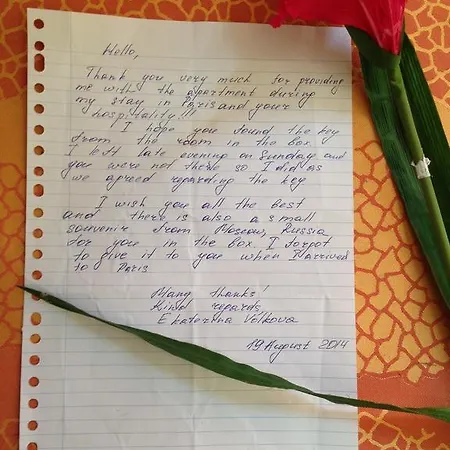 Hello,
Thank you very much for providing
me with the apartment during
my stay in Paris and your
hospitality!!!
I hope you found the key
from the room in the box.
I left late evening on Sunday and
you were not there so I did as
we agreed regarding the key
I wish you all the best
and there is also a small
souvenir from Moscow, Russia
for you in the box. I forgot
to give it to you when I arrived
to Paris
Many thanks!
Kind regards,
Ekaterina Volkova
19 August 2014